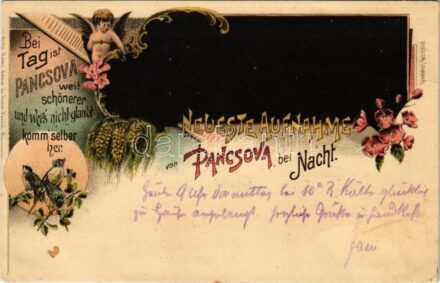 Bei
Tag ist
PANCSOVA
weit
schönerer
und wer's nicht glaubt
komm selber
her.
NEUESTE AUFNAHME
von PANCSOVA bei Nacht.
Heute 9 Uhr Vormittag bei 10° R. Kälte glücklich
zu Hause angelangt. herzliche Grüße u. Handkuß